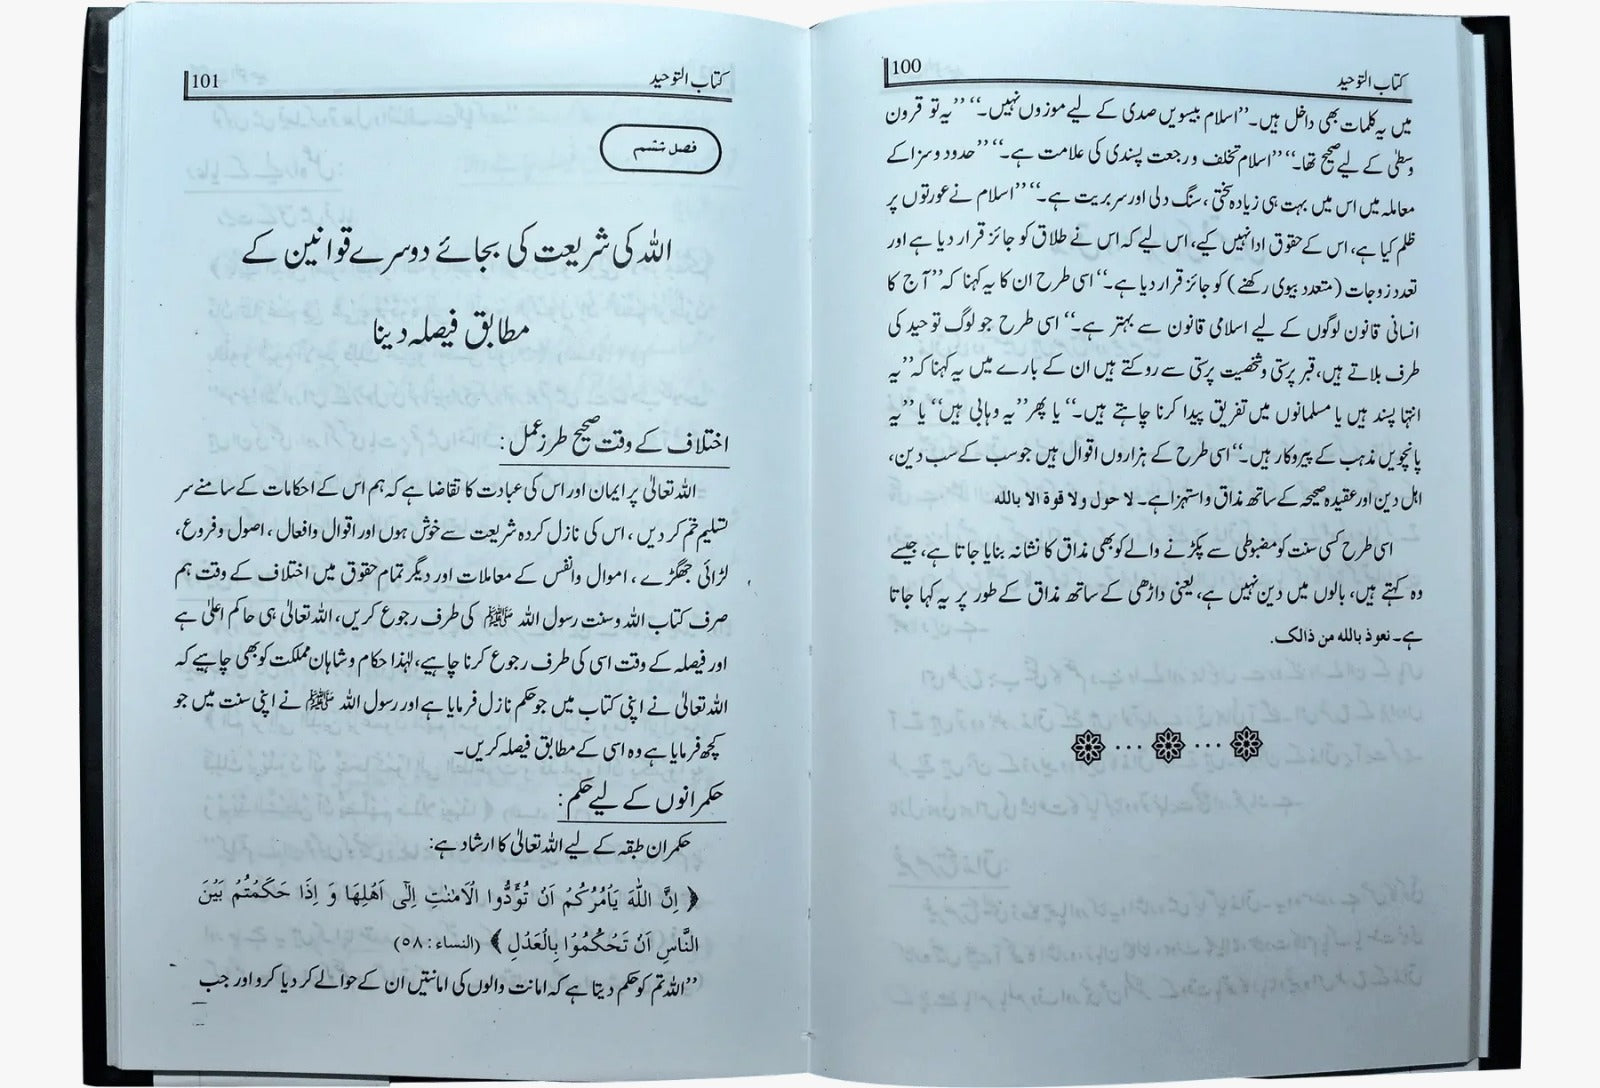 کتاب التوحید
100
میں یہ کلمات بھی داخل ہیں۔ ’’اسلام بیسویں صدی کے لیے موزوں نہیں۔‘‘ ’’یہ تو قرون
وسطیٰ کے لیے صحیح تھا۔‘‘ ’’اسلام تخلف و رجعت پسندی کی علامت ہے۔‘‘ ’’حدود و سزا کے
معاملہ میں اس میں بہت ہی زیادہ سختی، سنگ دلی اور سربریت ہے۔‘‘ ’’اسلام نے عورتوں پر
ظلم کیا ہے، اس کے حقوق ادا نہیں کیے، اس لیے کہ اس نے طلاق کو جائز قرار دیا ہے اور
تعدد زوجات (متعدد بیوی رکھنے) کو جائز قرار دیا ہے۔‘‘ اسی طرح ان کا یہ کہنا کہ ’’آج کا
انسانی قانون لوگوں کے لیے اسلامی قانون سے بہتر ہے۔‘‘ اسی طرح جو لوگ توحید کی
طرف بلاتے ہیں، قبر پرستی و شخصیت پرستی سے روکتے ہیں ان کے بارے میں یہ کہنا کہ ’’یہ
انتہا پسند ہیں یا مسلمانوں میں تفریق پیدا کرنا چاہتے ہیں۔‘‘ یا پھر ’’یہ وہابی ہیں‘‘ یا ’’یہ
پانچویں مذہب کے پیروکار ہیں۔‘‘ اسی طرح کے ہزاروں اقوال ہیں جو سب کے سب دین،
اہل دین اور عقیدہ صحیحہ کے ساتھ مذاق و استہزا ہے۔ لا حول ولا قوة الا بالله
اسی طرح کسی سنت کو مضبوطی سے پکڑنے والے کو بھی مذاق کا نشانہ بنایا جاتا ہے، جیسے
وہ کہتے ہیں، بالوں میں دین نہیں ہے، یعنی داڑھی کے ساتھ مذاق کے طور پر یہ کہا جاتا
ہے۔ نعوذ بالله من ذالک.
کتاب التوحید
101
فصل ششم
اللہ کی شریعت کی بجائے دوسرے قوانین کے
مطابق فیصلہ دینا
اختلاف کے وقت صحیح طرز عمل:
اللہ تعالیٰ پر ایمان اور اس کی عبادت کا تقاضا ہے کہ ہم اس کے احکامات کے سامنے سر
تسلیم خم کر دیں، اس کی نازل کردہ شریعت سے خوش ہوں اور اقوال و افعال، اصول و فروع،
لڑائی جھگڑے، اموال و انفس کے معاملات اور دیگر تمام حقوق میں اختلاف کے وقت ہم
صرف کتاب اللہ و سنت رسول اللہ ﷺ کی طرف رجوع کریں، اللہ تعالیٰ ہی حاکم اعلیٰ ہے
اور فیصلہ کے وقت اسی کی طرف رجوع کرنا چاہیے، لہٰذا حکام و شاہان مملکت کو بھی چاہیے کہ
اللہ تعالیٰ نے اپنی کتاب میں جو حکم نازل فرمایا ہے اور رسول اللہ ﷺ نے اپنی سنت میں جو
کچھ فرمایا ہے وہ اسی کے مطابق فیصلہ کریں۔
حکمرانوں کے لیے حکم:
حکمران طبقہ کے لیے اللہ تعالیٰ کا ارشاد ہے:
﴿ اِنَّ اللّٰهَ يَاْمُرُكُمْ اَنْ تُؤَدُّوا الْاَمٰنٰتِ اِلٰٓى اَهْلِهَا وَ اِذَا حَكَمْتُمْ بَيْنَ
النَّاسِ اَنْ تَحْكُمُوْا بِالْعَدْلِ ﴾ (النساء: ٥٨)
’’اللہ تم کو حکم دیتا ہے کہ امانت والوں کی امانتیں ان کے حوالے کر دیا کرو اور جب